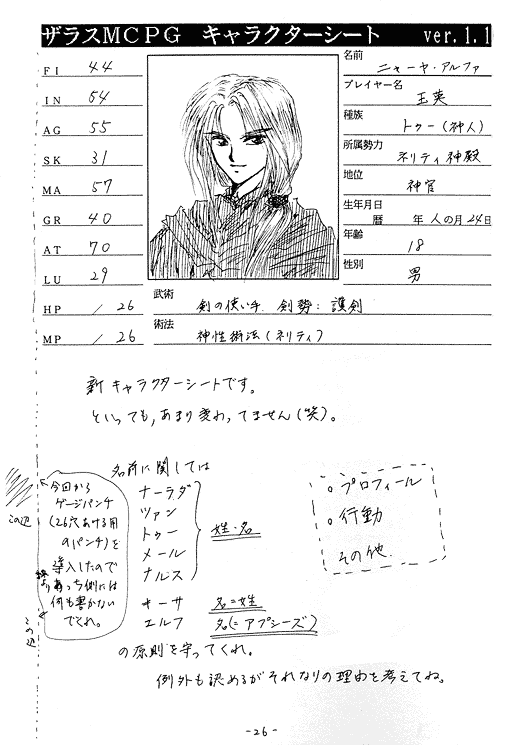 ザラスMCPG キャラクターシート ver.1.1
FI 44
IN 64
AG 55
SK 31
MA 57
GR 40
AT 70
LU 29
HP / 26
MP / 26
名前 ニャーヤ・アルファ
プレイヤー名 王英
種族 トゥー(神人)
所属勢力 ネリティ神殿
地位 神官
生年月日
暦 年 人の月 24日
年齢 18
性別 男
武術 剣の使い手 剣勢:護剣
術法 神性術法(ネリティ)
新キャラクターシートです。
といっても,あまり変わってません(笑)。
名前に関しては
ナーラダ
ツァン
トゥー
メール
ナルス
姓・名
オーサ 名=姓
エルフ 名(=アプシーズ)
の原則を守ってくれ。
例外も認めるがそれなりの理由を考えてね。
。プロフィール
。行動
その他.
今回から
ゲージパンチ
(26穴あける用
のパンチ)を
導入したので
あっち側には
何も書かない
でくれ。
この辺
線より
この辺
-26-